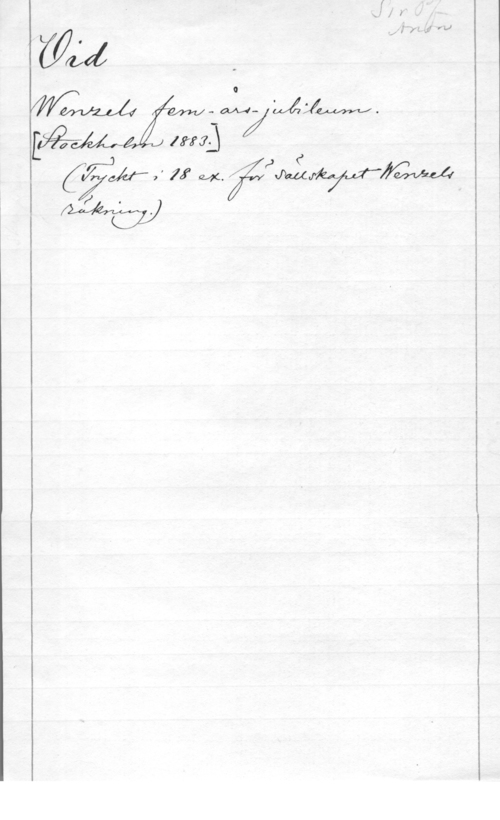 Vid
Wenzels fem-års-jubileum.
[Stockholm 1883.]
(Tryckt i 18 ex. för Sällskapet Wenzels
räkning.)